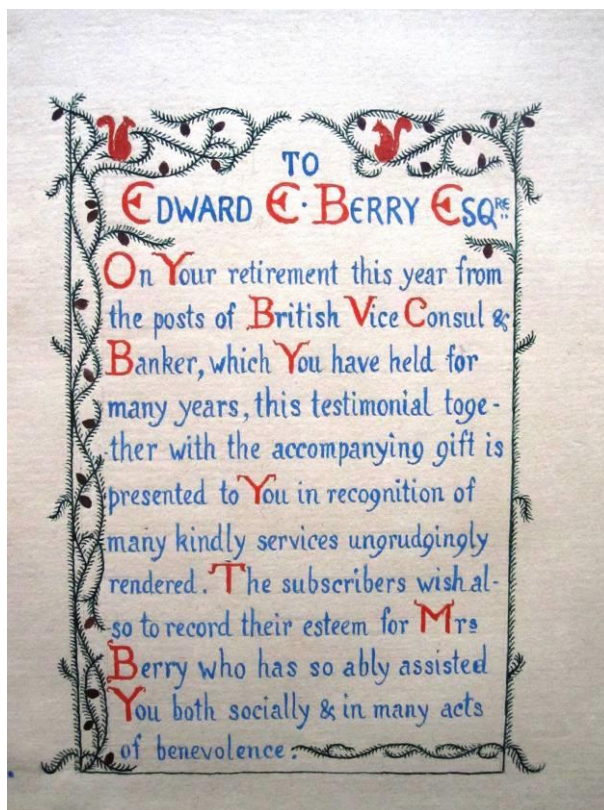 TO
EDWARD E·BERRY ESQRE
On Your retirement this year from
the posts of British Vice Consul &
Banker, which You have held for
many years, this testimonial toge-
ther with the accompanying gift is
presented to You in recognition of
many kindly services ungrudgingly
rendered. The subscribers wish al-
so to record their esteem for Mrs
Berry who has so ably assisted
You both socially & in many acts
of benevolence.